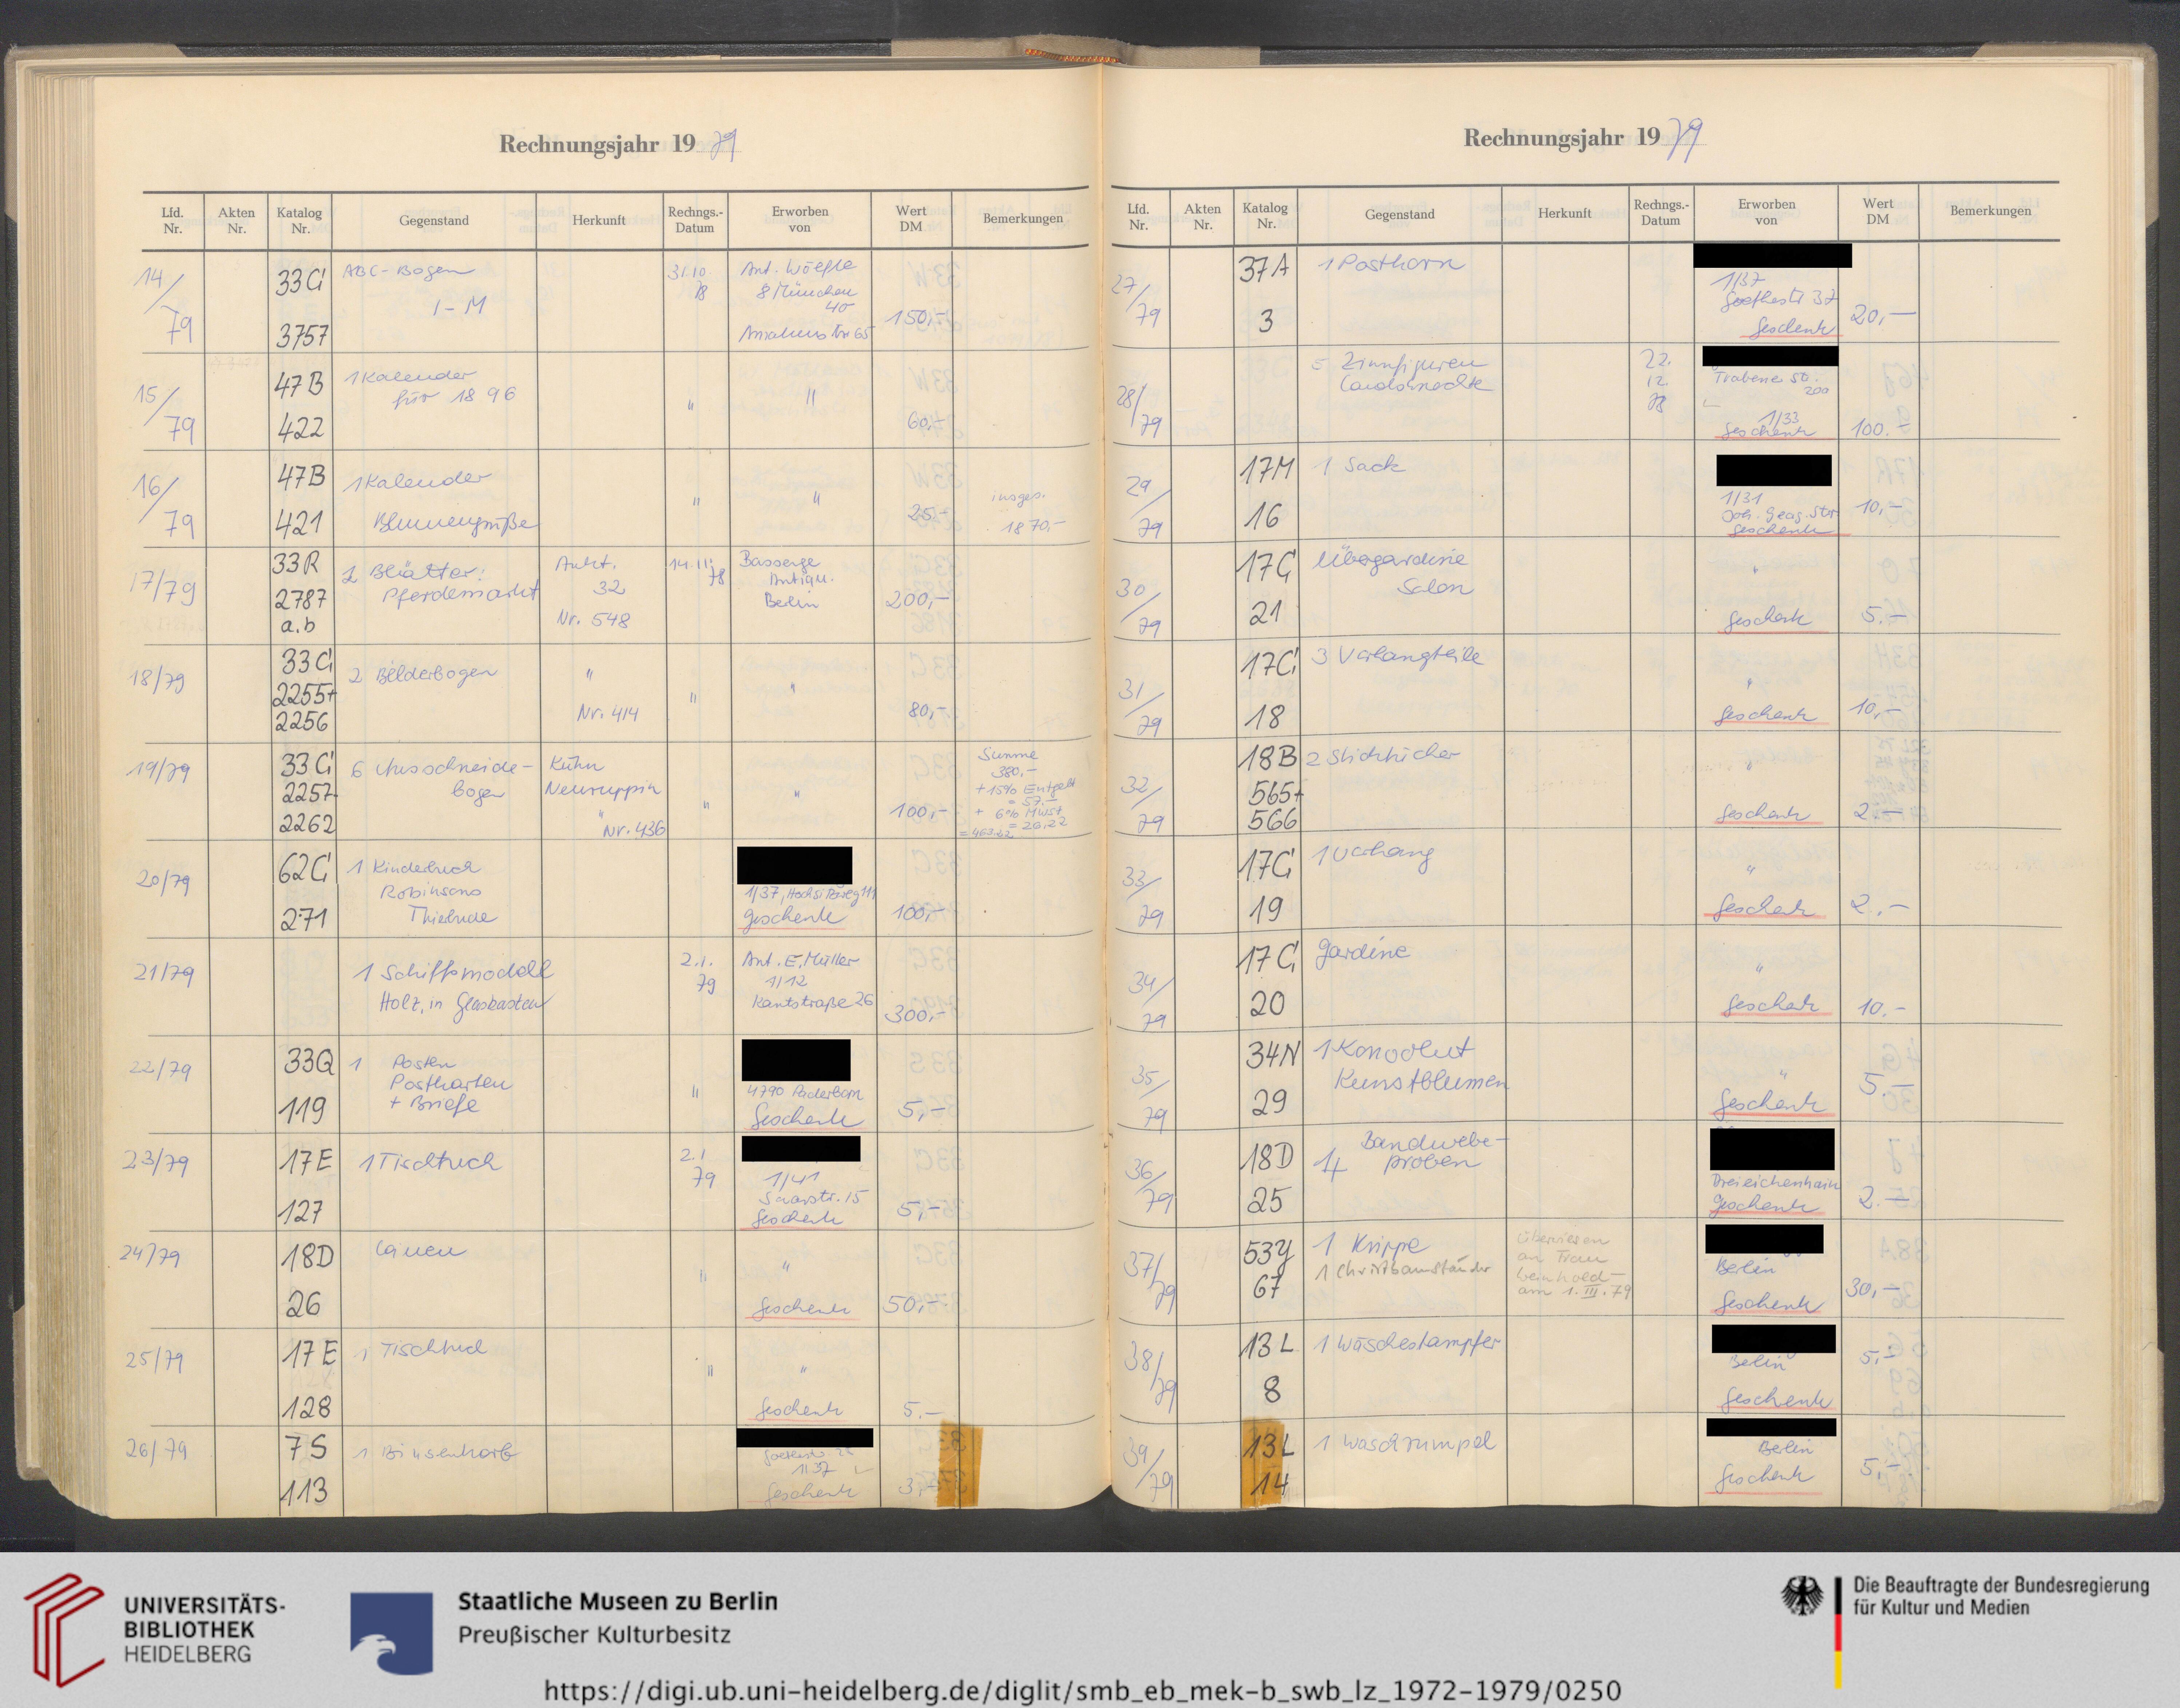 Rechnungsjahr 19 79
Lfd. Nr. Akten Nr. Katalog Nr. Gegenstand Herkunft Rechngs.-Datum Erworben von Wert DM Bemerkungen
14/79 33G 3757 ABC-Bogen I-M 31.10 78 Ant. Wölfle 8 München 40 65 150,-
15/79 47B 422 1 Kalender für 1896 " " 60,-
16/79 47B 421 1 Kalender Blumengrüße " " 25,- insges. 1870,-
17/79 33R 2787 a.b 2 Blätter: Pferdemarkt Aukt. 32 Nr. 548 14.11. 78 Bassenge Antiqu. Berlin 200,-
18/79 33G 2255+ 2256 2 Bilderbogen " Nr. 414 " " 80,-
19/79 33G 2257- 2262 6 Ausschneide-bogen Kühn Neuruppin " Nr. 436 " " 100,- Summe 380,- +15% Entgelt = 57.- + 6% MwSt = 26,22 = 463.22
20/79 62G 271 1 Kinderbuch Robinsons 1/37, 111 Geschenk 100,-
21/79 1 Schiffsmodell Holz, in Glaskasten 2.1. 79 Ant. E. Müller 1/12 Kantstraße 26 300,-
22/79 33Q 119 1 Posten Postkarten + Briefe " 4790 Paderborn Geschenk 5,-
23/79 17E 127 1 Tischtuch 2.1 79 1/41 Saarstr. 15 Geschenk 5,-
24/79 18D 26 " " Geschenk 50,-
25/79 17E 128 1 Tischtuch " " Geschenk 5.-
26/79 7S 113 1 Binsenkorb 1/37 Geschenk 3,-
Rechnungsjahr 19 79
Lfd. Nr. Akten Nr. Katalog Nr. Gegenstand Herkunft Rechngs.-Datum Erworben von Wert DM Bemerkungen
27/79 37A 3 1 Posthorn 1/37 Goethestr 37 Geschenk 20,-
28/79 5 Zinnfiguren Landsknechte 22. 12 78 Trabener Str. 200 1/33 Geschenk 100.-
29/79 17M 16 1 Sack 1/31 Joh. Georg. Str Geschenk 10,-
30/79 17G 21 Übergardine Salon " Geschenk 5.-
31/79 17G 18 3 Vorhangteile " Geschenk 10,-
32/79 18B 565+ 566 2 Sticktücher " Geschenk 2.-
33/79 17G 19 1 Vorhang " Geschenk 2.-
34/79 17G 20 Gardine " Geschenk 10.-
35/79 34N 29 1 Konvolut Kunstblumen " Geschenk 5.-
36/79 18D 25 4 Bandwebe-proben Dreieichenhain Geschenk 2.-
37/79 53Y 67 1 Krippe 1 Christbaumständer überwiesen an Frau am 1.III.79 Berlin Geschenk 30,-
38/79 13L 8 1 Wäschestampfer Berlin Geschenk 5,-
39/79 13L 14 1 Waschrumpel Berlin Geschenk 5,-
UNIVERSITÄTS-
BIBLIOTHEK
HEIDELBERG
Staatliche Museen zu Berlin
Preußischer Kulturbesitz
Die Beauftragte der Bundesregierung
für Kultur und Medien
https://digi.ub.uni-heidelberg.de/diglit/smb_eb_mek-b_swb_lz_1972-1979/0250